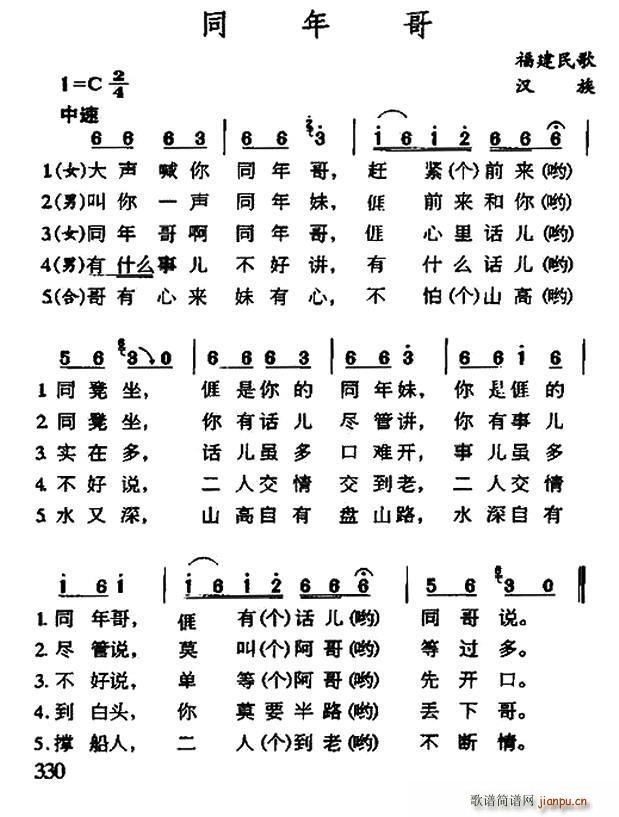 同 年 哥
福建民歌
汉 族
1=C 2/4
中速
6 6 6 3 | 6 6 3 | i 6 i 2 6 6 6 |
1(女)大声喊你 同年哥, 赶 紧(个)前来(哟)
2(男)叫你一声 同年妹, 𠊎 前来和你(哟)
3(女)同年哥啊 同年哥, 𠊎 心里话儿(哟)
4(男)有什么事儿 不好讲, 有 什么话儿(哟)
5.(合)哥有心来 妹有心, 不 怕(个)山高(哟)
5 6 3 0 | 6 6 6 3 | 6 6 3 | 6 6 i 6 |
1. 同凳坐, 𠊎是你的 同年妹, 你是𠊎的
2. 同凳坐, 你有话儿 尽管讲, 你有事儿
3. 实在多, 话儿虽多 口难开, 事儿虽多
4. 不好说, 二人交情 交到老, 二人交情
5. 水又深, 山高自有 盘山路, 水深自有
i 6 i | i 6 i 2 6 6 6 | 5 6 3 0 ‖
1. 同年哥, 𠊎 有(个)话儿(哟) 同哥说。
2. 尽管说, 莫 叫(个)阿哥(哟) 等过多。
3. 不好说, 单 等(个)阿哥(哟) 先开口。
4. 到白头, 你 莫要半路(哟) 丢下哥。
5. 撑船人, 二 人(个)到老(哟) 不断情。
330
歌谱简谱网
jianpu.cn